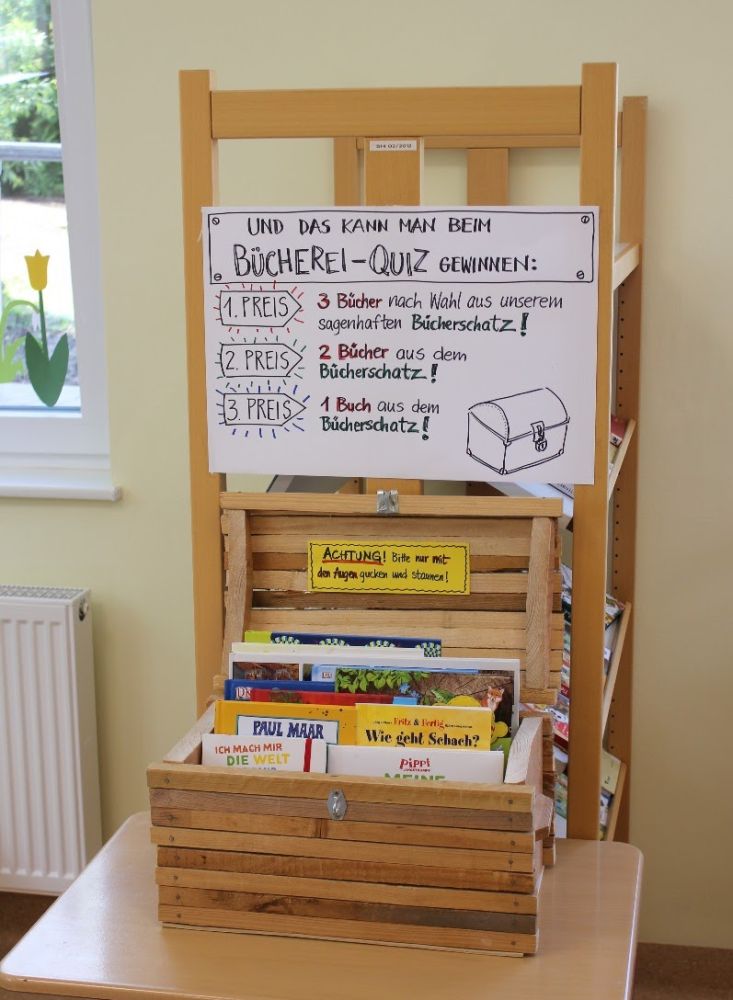 BIH 02/2012
UND DAS KANN MAN BEIM
BÜCHEREI-QUIZ GEWINNEN:
1. PREIS 3 Bücher nach Wahl aus unserem
sagenhaften Bücherschatz!
2. PREIS 2 Bücher aus dem
Bücherschatz!
3. PREIS 1 Buch aus dem
Bücherschatz!
ACHTUNG! Bitte nur mit
den Augen gucken und staunen!
DK
PAUL MAAR
Fritz & Fertig
Wie geht Schach?
ICH MACH MIR
DIE WELT
pippi
MEINE